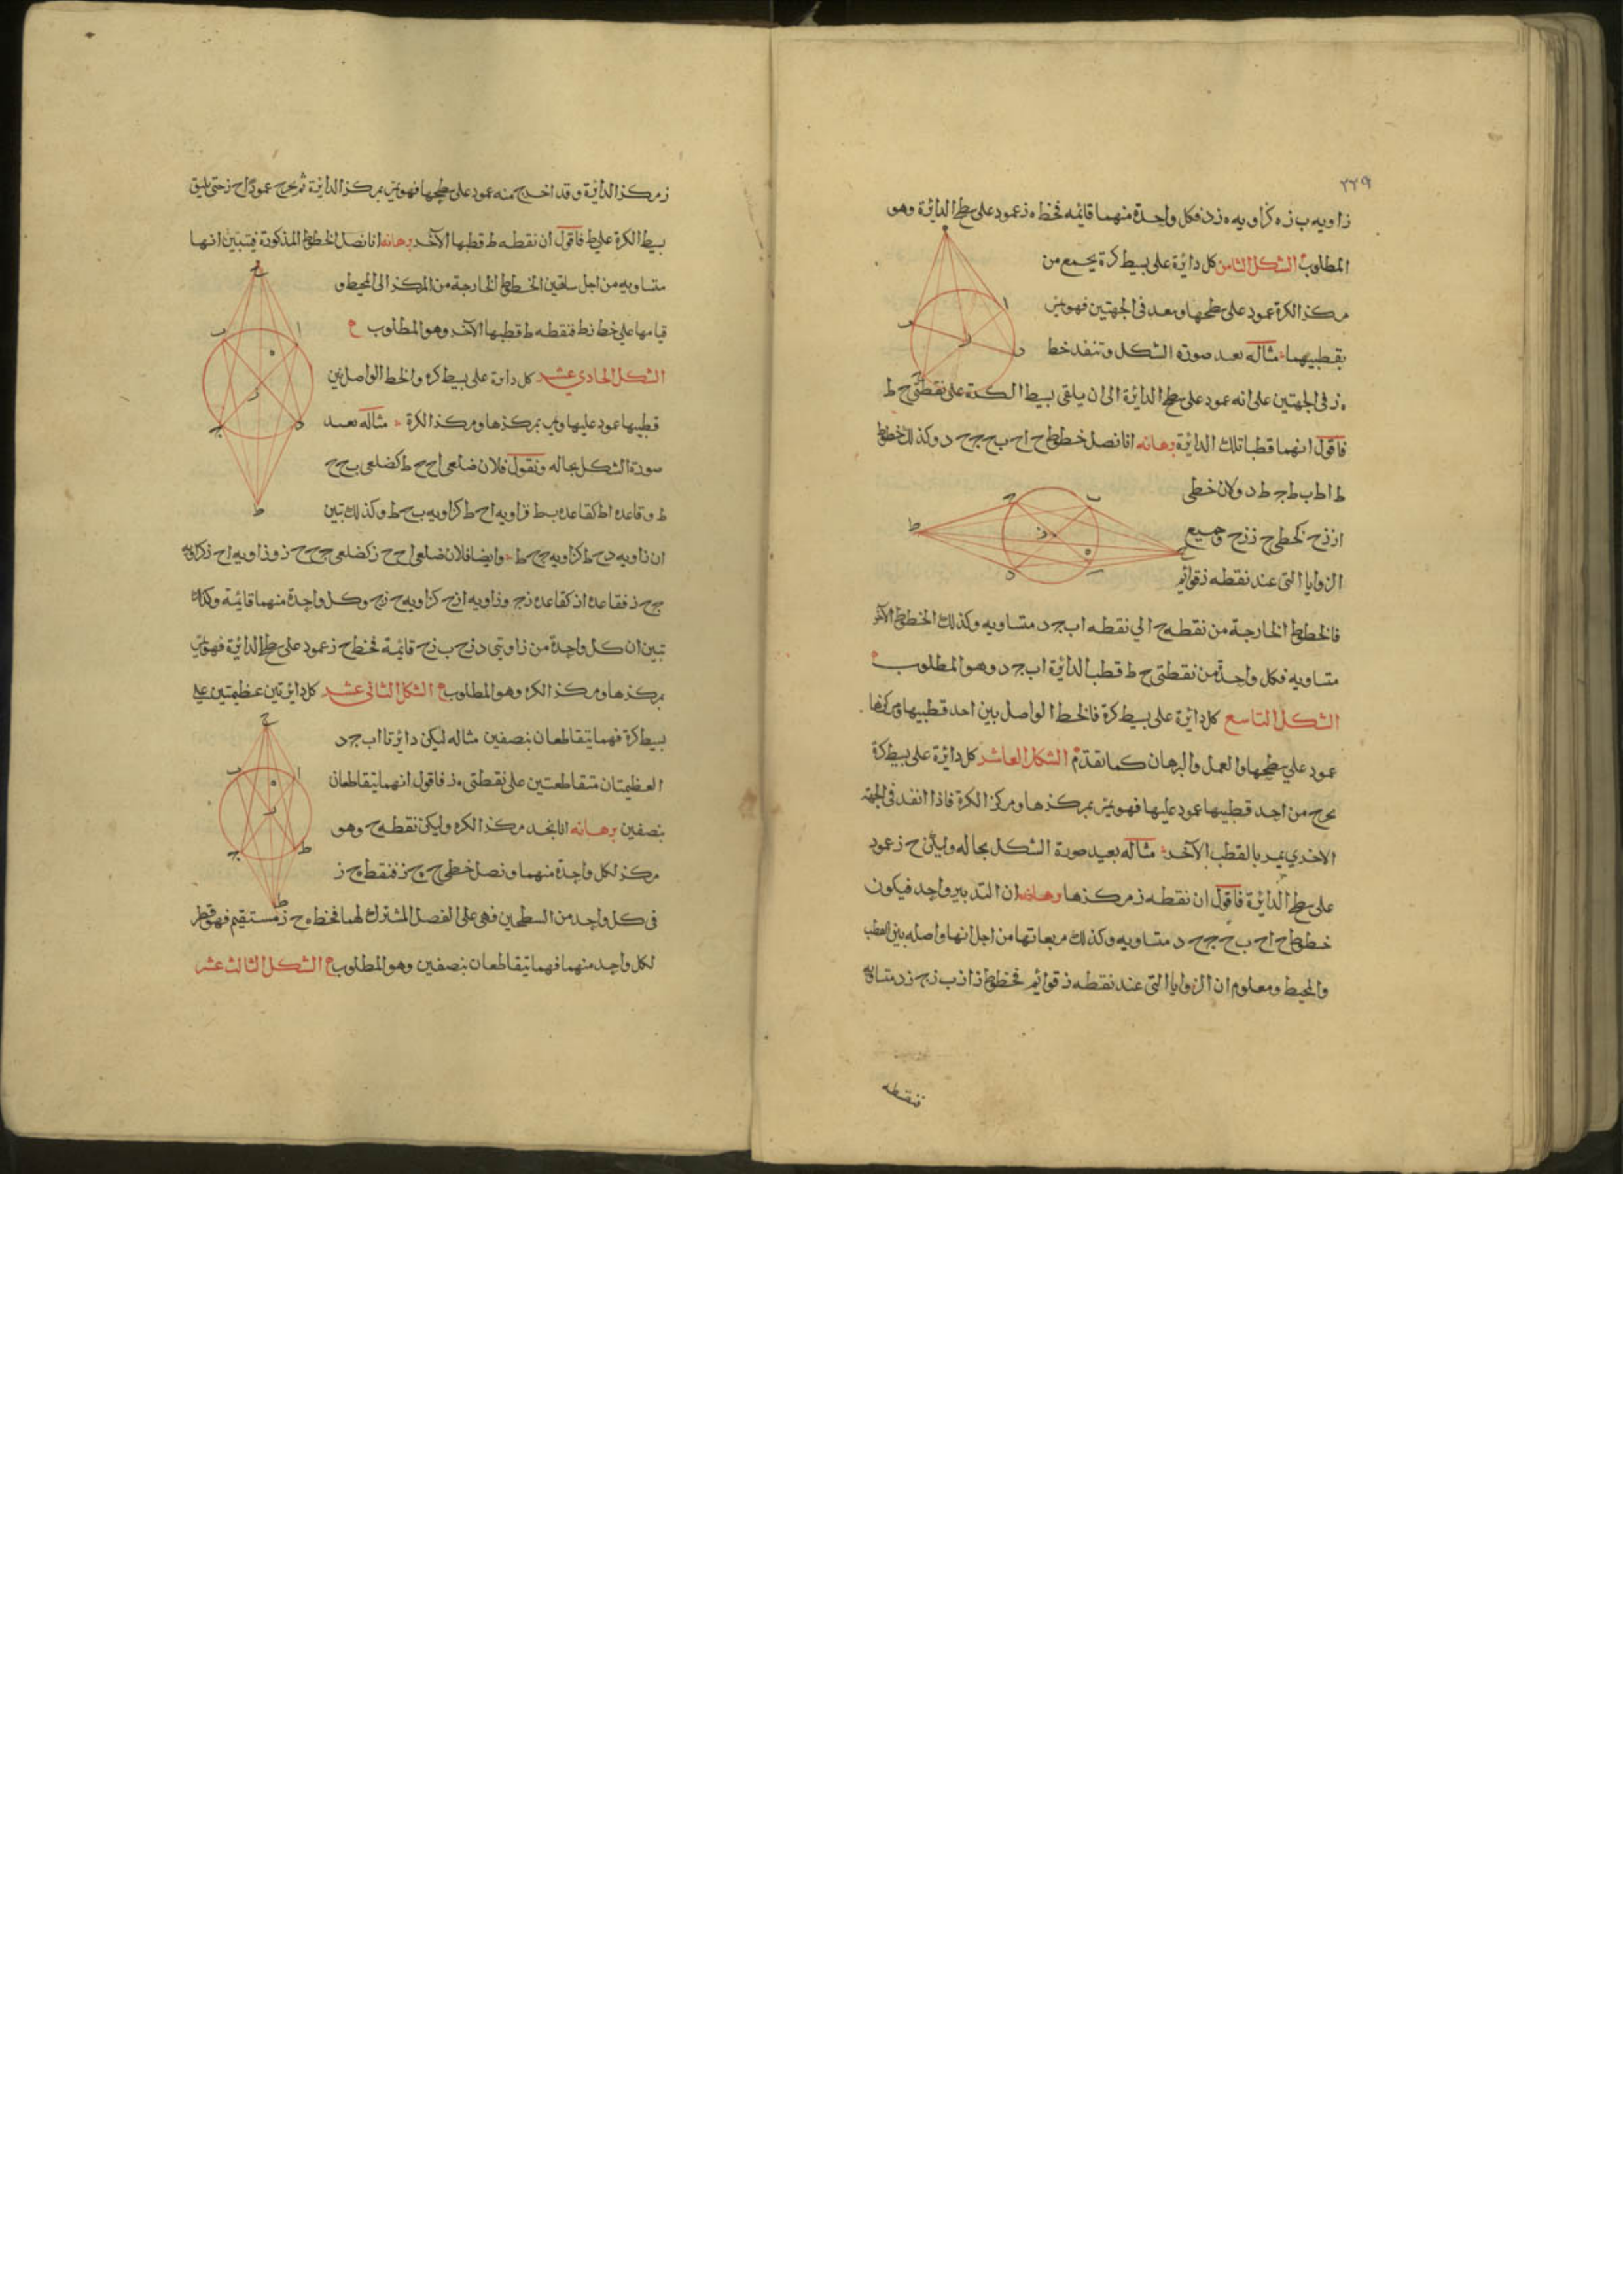 ٢٢٩
زاويه ب ز ه كزاويه ه ز د فكل واحدة منهما قائمه فخط ه ز عمود على سطح الدائرة وهو
المطلوب الشكل الثامن كل دائرة على بسيط كرة يخرج من
مركز الكرة عمود على سطحها وينفد فى الجهتين فهو يمر
بقطبيهما مثاله نعيد صورة الشكل وتنفد خط
ه ز فى الجهتين على انه عمود على سطح الدائرة الى ان يلقى بسيط الكرة على نقطتى ح ط
فاقول انهما قطبا تلك الدائرة برهانه انا نصل خطوط ح ا ح ب ح ج ح د وكذلك خطوط
ط ا ط ب ط ج ط د ولان خطى
ا ز ز ح كخطى ج ز ز ح وجميع
الزوايا التى عند نقطه ز قوائم
فالخطوط الخارجة من نقطه ح الي نقطه ا ب ج د متساويه وكذلك الخطوط الآخر
متساويه فكل واحدة من نقطتى ح ط قطب الدائرة ا ب ج د وهو المطلوب
الشكل التاسع كل دائرة على بسيط كرة فالخط الواصل بين احد قطبيها ومركزها
عمود علي سطحها والعمل والبرهان كما تقدم الشكل العاشر كل دائرة على بسيط كرة
يخرج من احد قطبيها عمود عليها فهو يمر بمركزها ومركز الكرة فاذا انفد فى الجهة
الاخري يمر بالقطب الآخر مثاله نعيد صورة الشكل بحاله وليكن ح ز عمود
على سطح الدائرة فاقول ان نقطه ز مركزها برهانه ان التدبير واحد فيكون
خطوط ح ا ح ب ح ج ح د متساويه وكذلك مربعاتها من اجل انها واصله بين القطب
والمحيط ومعلوم ان الزوايا التى عند نقطه ز قوائم فخطوط ز ا ز ب ز ج ز د متساويه
فنقطه
ز مركز الدائرة وقد اخرج منه عمود على سطحها فهو يمر بمركز الدائرة ثم نخرج عمود ح ز حتى يلقى
بسيط الكرة على ط فاقول ان نقطه ط قطبها الآخر برهانه انا نصل الخطوط المذكورة فيتبين انها
متساويه من اجل الخطوط الخارجة من المركز الى المحيط و
قيامها على خط ز ط فنقطه ط قطبها الآخر وهو المطلوب
الشكل الحادي عشر كل دايرة على بسيط كره والخط الواصل بين
قطبيها عمود عليها ويمر بمركزها ومركز الكرة مثاله نعيد
صورة الشكل بحاله ونقول فلان ضلعى ا ح ح ط كضلعى ب ح ح
ط وقاعده ا ط كقاعده ب ط فزاويه ا ح ط كزاويه ب ح ط وكذلك تبين
ان زاويه د ح ط كزاويه ج ح ط وايضا فلان ضلعى ا ح ح ز كضلعى ج ح ح ز وزاويه ا ح ز كزاويه
ج ح ز فقاعده ا ز كقاعده ز ج وزاويه ا ز ح كزاويه ح ز ج وكل واحدة منهما قائمة وكذلك
تبين ان كل واحدة من زاويتى د ز ح ب ز ح قائمة فخط ح ز عمود على سطح الدائرة فهو يمر
بمركزها ومركز الكره وهو المطلوب الشكل الثانى عشر كل دائرتين عظيمتين على
بسيط كرة فهما يتقاطعان بنصفين مثاله ليكن دائرتا ا ب ج د
العظيمتان متقاطعتين على نقطتى ه ز فاقول انهما يتقاطعان
بنصفين برهانه انا نجد مركز الكره وليكن نقطه ح وهو
مركز لكل واحدة منهما ونصل خطى ح ه ح ز فنقط ه ح ز
فى كل واحد من السطحين فهى على الفصل المشترك لهما فخط ه ح ز مستقيم فهو قطر
لكل واحد منهما فهما يتقاطعان بنصفين وهو المطلوب الشكل الثالث عشر